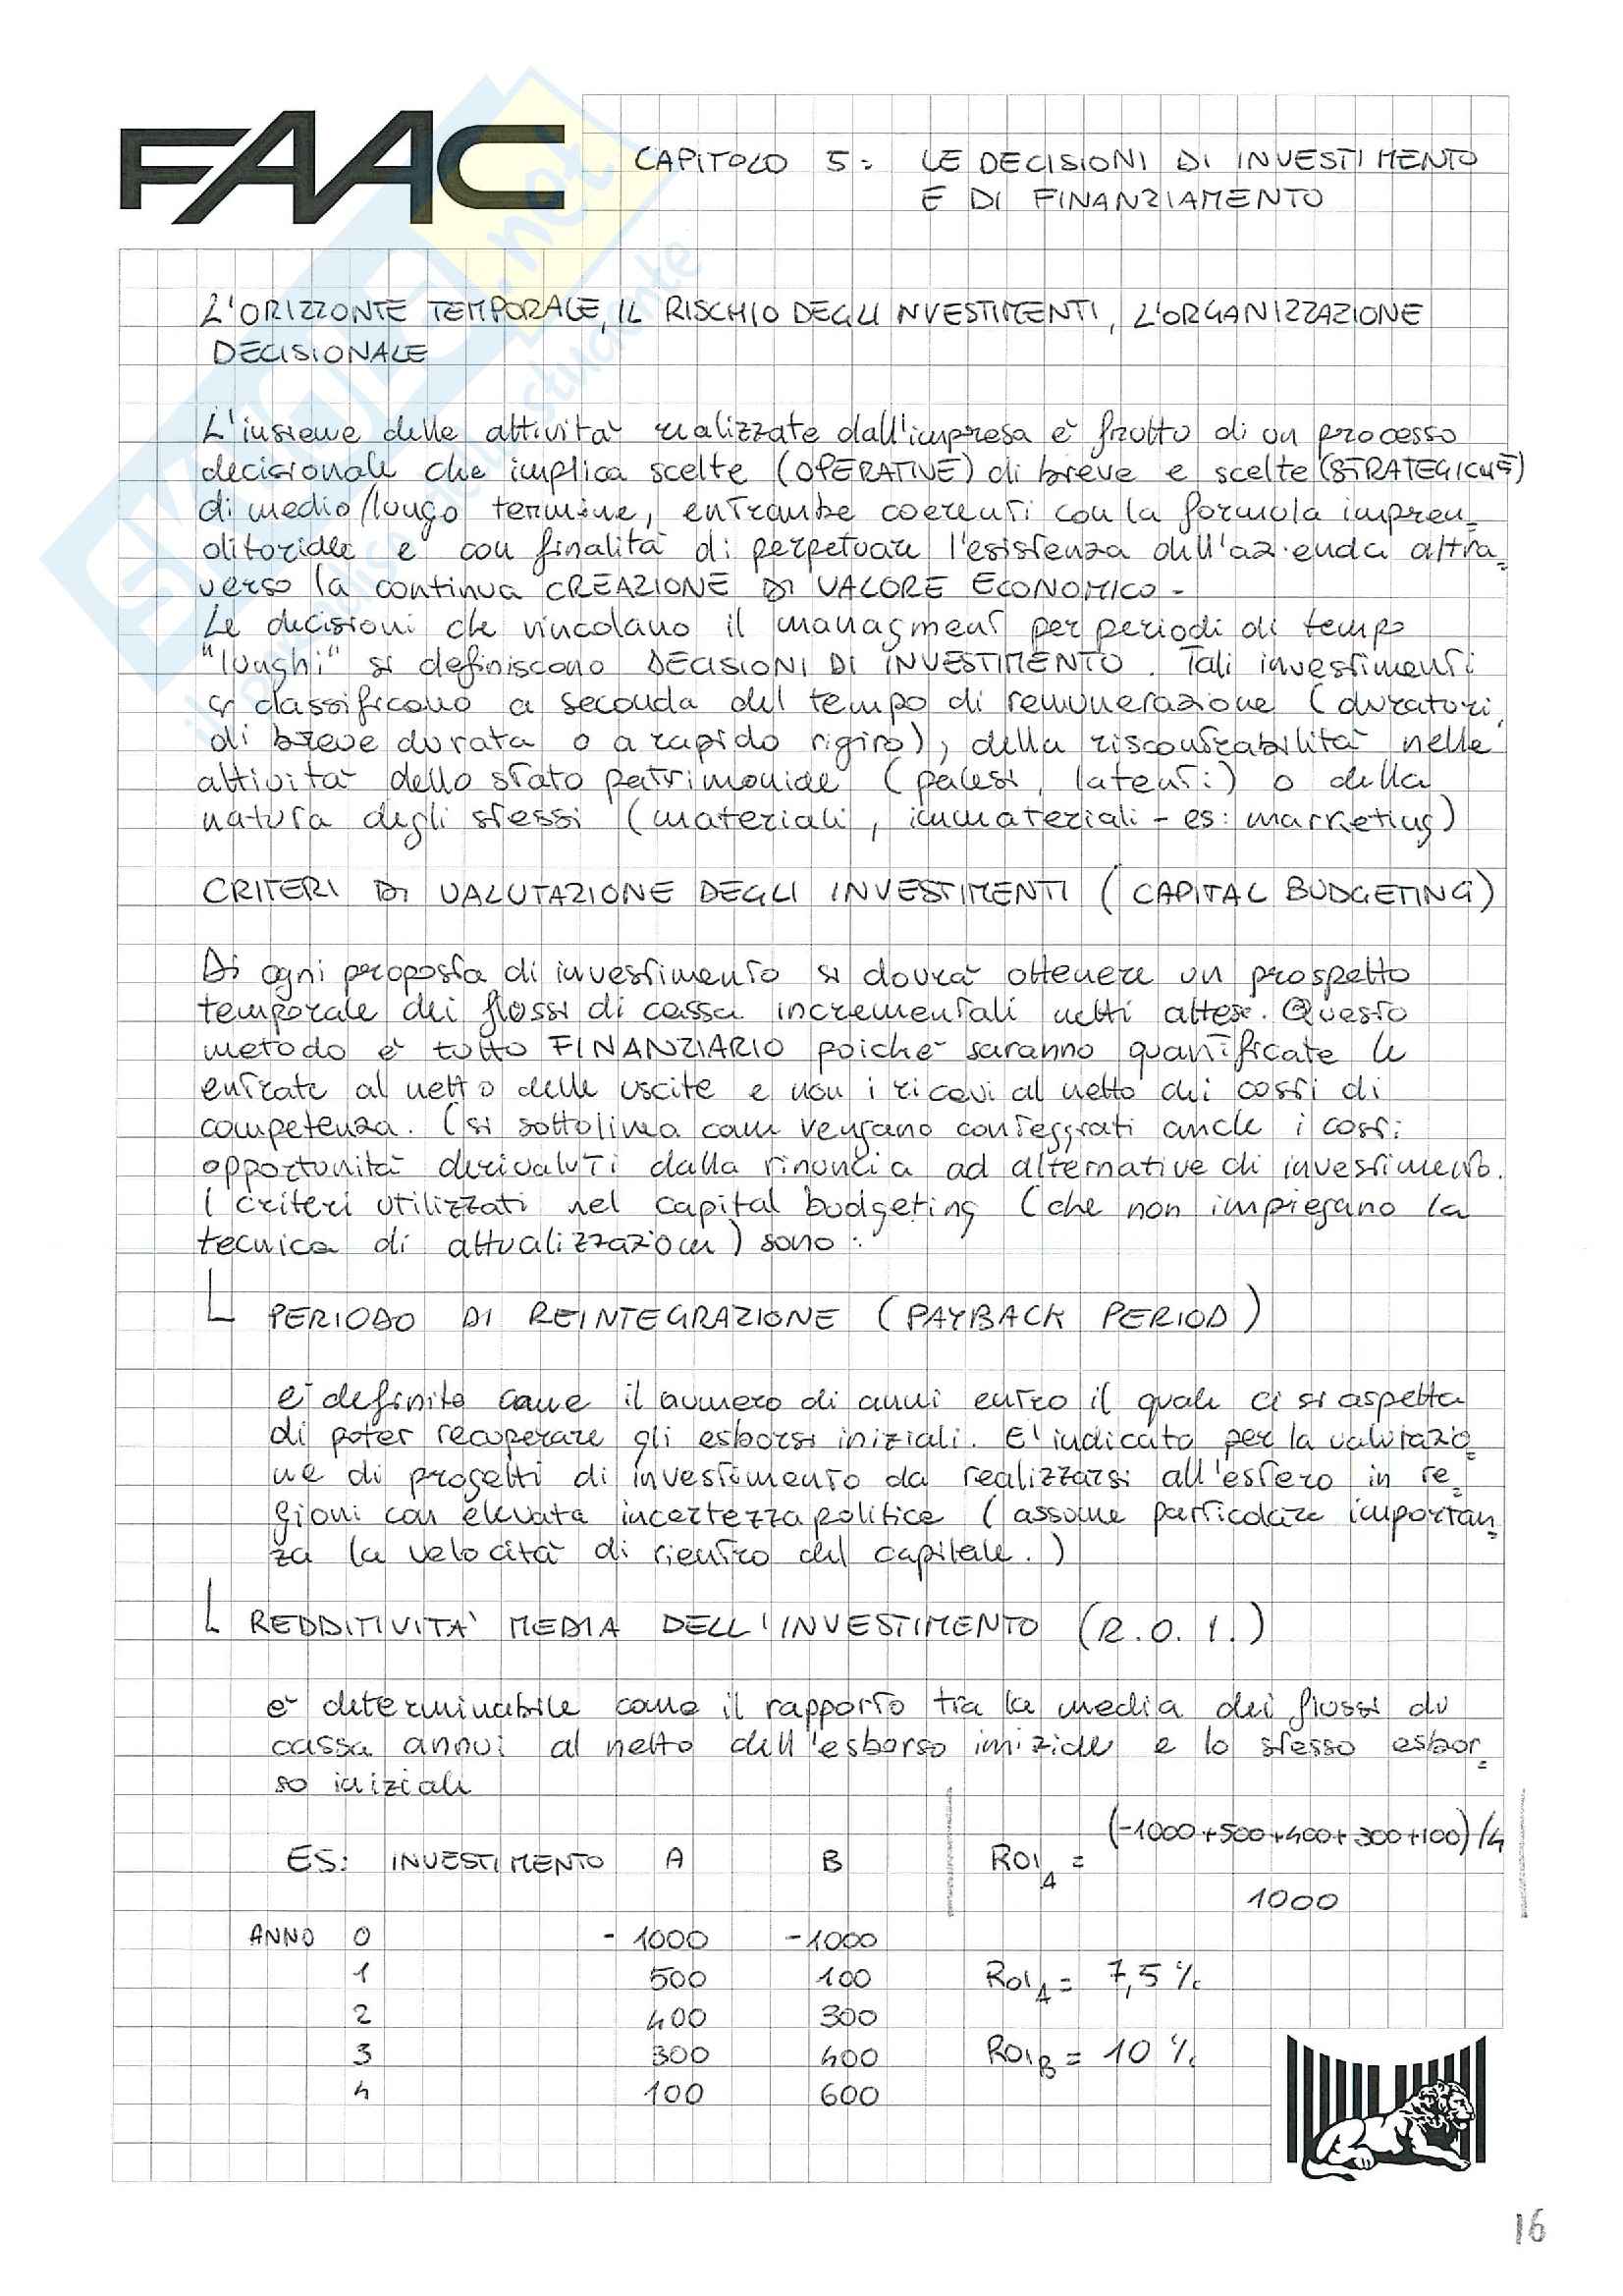 FAAC
CAPITOLO 5: LE DECISIONI DI INVESTIMENTO
E DI FINANZIAMENTO
L'ORIZZONTE TEMPORALE, IL RISCHIO DEGLI NVESTIMENTI, L'ORGANIZZAZIONE
DECISIONALE
L'insieme delle attività realizzate dall'impresa è frutto di un processo
decisionale che implica scelte (OPERATIVE) di breve e scelte (STRATEGICHE)
di medio/lungo termine, entrambe coerenti con la formula impren=
ditoriale e con finalità di perpetuare l'esistenza dell'azienda attra=
verso la continua CREAZIONE DI VALORE ECONOMICO -
Le decisioni che vincolano il managment per periodi di tempo
"lunghi" si definiscono DECISIONI DI INVESTIMENTO. Tali investimenti
si classificano a seconda del tempo di remunerazione (duraturi,
di breve durata o a rapido rigiro), della riscontrabilità nelle
attività dello stato patrimoniale (palesi, latenti) o della
natura degli stessi (materiali, immateriali - es: marketing)
CRITERI DI VALUTAZIONE DEGLI INVESTIMENTI (CAPITAL BUDGETING)
Di ogni proposta di investimento si dovrà ottenere un prospetto
temporale dei flussi di cassa incrementali netti attesi. Questo
metodo è tutto FINANZIARIO poiché saranno quantificate le
entrate al netto delle uscite e non i ricavi al netto dei costi di
competenza. (si sottolinea come vengano conteggiati anche i costi
opportunità derivanti dalla rinuncia ad alternative di investimento.
I criteri utilizzati nel capital budgeting (che non impiegano la
tecnica di attualizzazione) sono:
PERIODO DI REINTEGRAZIONE (PAYBACK PERIOD)
è definito come il numero di anni entro il quale ci si aspetta
di poter recuperare gli esborsi iniziali. E' indicato per la valutazio=
ne di progetti di investimento da realizzarsi all'estero in re=
gioni con elevata incertezza politica (assume particolare importan=
za la velocità di rientro del capitale.)
REDDITIVITA' MEDIA DELL'INVESTIMENTO (R.O.I.)
è determinabile come il rapporto tra la media dei flussi di
cassa annui al netto dell'esborso iniziale e lo stesso esbor=
so iniziale
(-1000+500+400+300+100)/4
ES: INVESTIMENTO A B ROI_A =
1000
ANNO 0 -1000 -1000
1 500 100 ROI_A = 7,5 %
2 400 300
3 300 400 ROI_B = 10 %
4 100 600
16